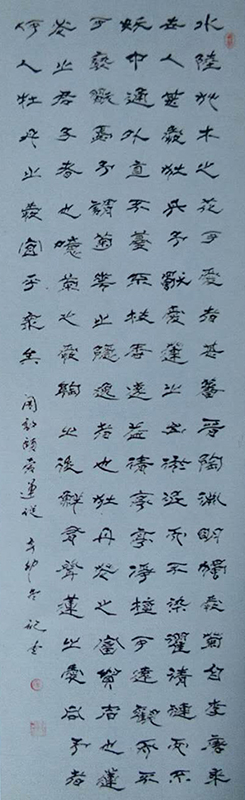 水陸艸木之花可愛者甚蕃晉陶淵明獨愛菊自李唐来
世人甚愛牡丹予獨愛蓮之出淤泥而不染濯清漣而不
妖中通外直不蔓不枝香遠益清亭亭淨植可遠觀而不
可褻翫焉予謂菊華之隱逸者也牡丹華之富貴者也蓮
華之君子者也噫菊之愛陶之後鮮有聞蓮之愛同予者
何人牡丹之愛宜乎衆矣
周敦頤愛蓮説辛卯冬